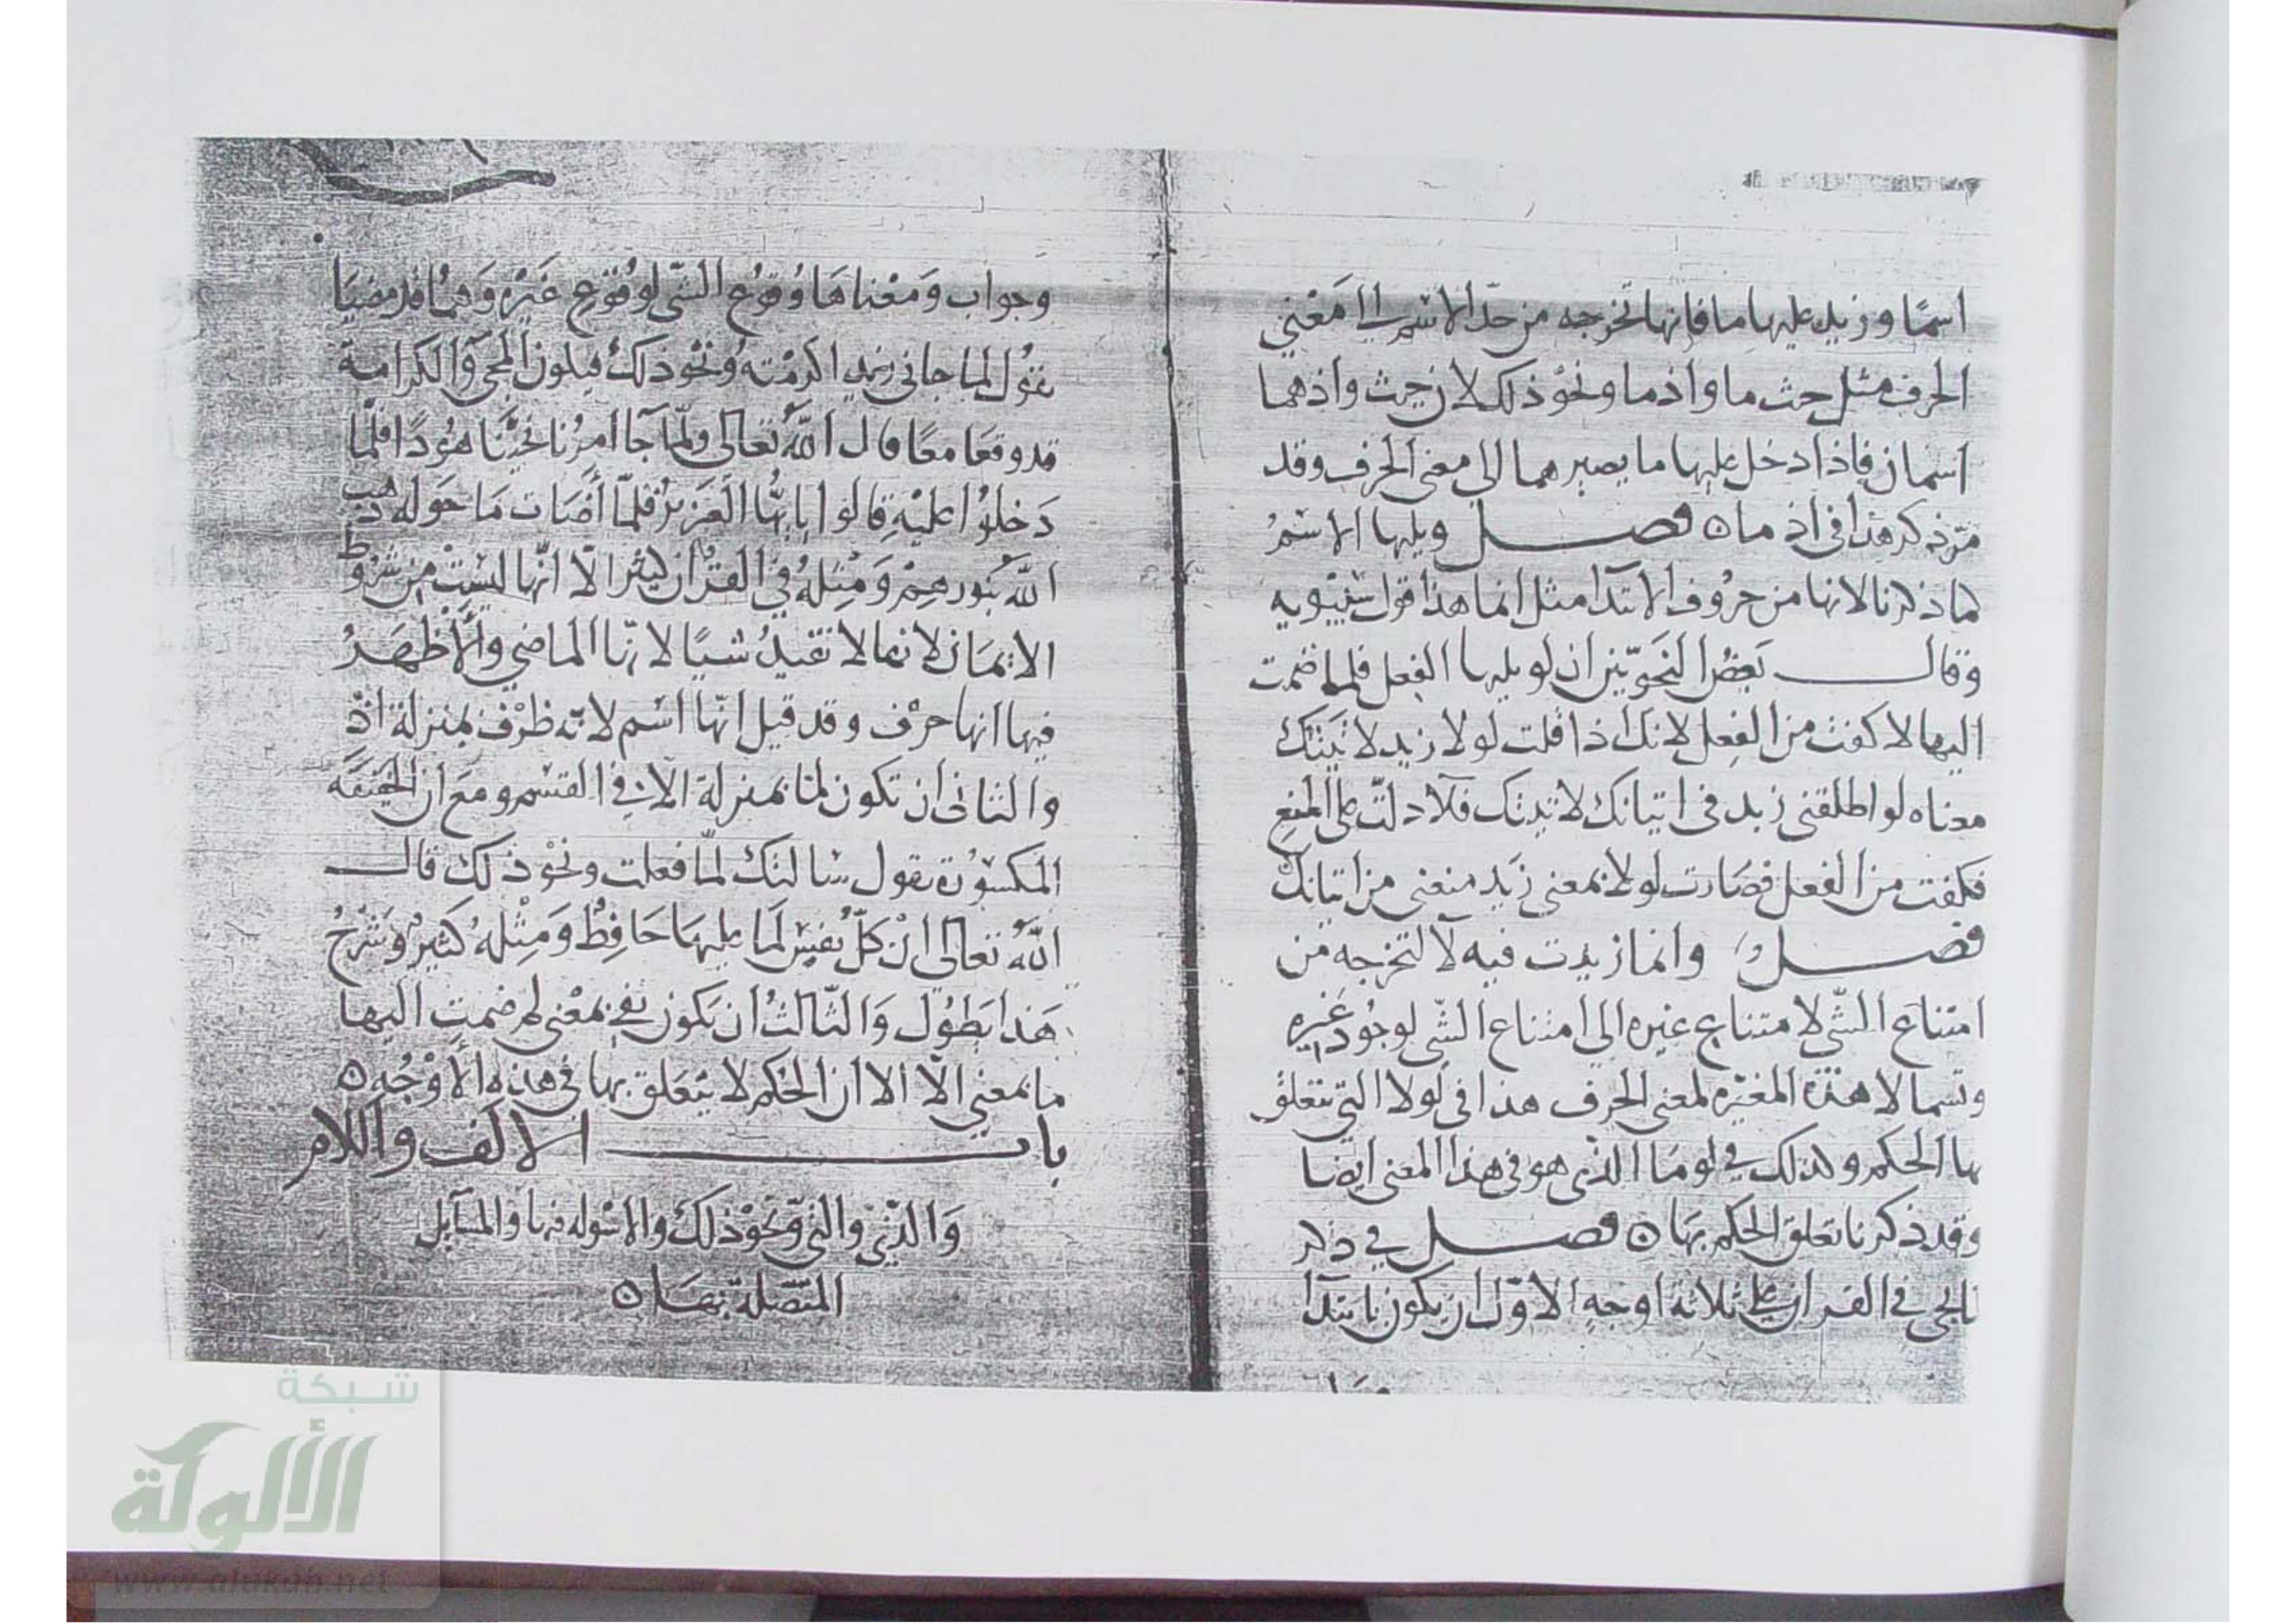 اسمًا وزيد عليها ما فانها تخرجه من حدّ الاسم الى معنى
الحرف مثل حيث ما واذ ما ونحو ذلك لان حيث واذ هما
اسمان فاذا دخل عليها ما يصيرهما الى معنى الحرف وقد
مرّ ذكر هذا فى اذ ما ٥ فصل ويليها الاسمُ
كما ذكرنا لانها من حروف الابتدآ مثل انما هذا قول سيبويه
وقال بعض النحويّين ان لو يليها الفعل فلما ضمت
اليها لا كفت من الفعل لانك اذا قلت لولا زيد لاتيتك
معناه لو اطلقنى زيد فى اتيانك لاتيتك فلآ دلّت على المنع
فكفت من الفعل فصارت لولا بمعنى زيد منعنى من اتيانك
فصل وانما زيدت فيه لآ لتخرجه من
امتناع الشّى لامتناع غيره الى امتناع الشّى لوجود غيره
وتسما لا هذه المغيّره لمعنى الحرف هذا فى لولا التى تتعلق
بها الحكم وكذلك فى لو ما الذى هو فى هذا المعنى ايضا
وقد ذكرنا تعلق الحكم بها ٥ فصل فى ذكر
لما يجى فى القران على ثلاثة اوجه الاوّل ان يكون بابتدآ
وجواب ومعناها وُقوع الشّى لوقوع غيره وهما قد مضيا
تقول لما جانى زيد اكرمته ونحو ذلك فيكون المجى والكرامة
قد وقعا معًا قال الله تعالى ولمّا جآ امرنا نجّينا هودًا فلمّا
دخلوا عليه قالوا يايّها العزيز فلمّا اضات ما حوله ذهب
الله بنورهم ومثله فى القران كثير الّا انّها ليست من شروط
الايمان لانها لا تفيد شيًا لانّها الماضى والأظهر
فيها انها حرف وقد قيل انّها اسم لانّه ظرف بمنزلة اذ
والثانى ان تكون لما بمنزلة الّا فى القسم ومع ان الخفيفه
المكسورة تقول سالتك لمّا فعلت ونحو ذلك قال
الله تعالى ان كلّ نفس لما عليها حافظ ومثله كثير وشرح
هذا يطول والثالث ان يكون نفى بمعنى لم ضمت اليها
ما بمعنى الّا الا ان الحكم لا يتعلق بها فى هذه الأوجه ٥
باب الالف واللام
والذى والتى ونحو ذلك والاسوله فيها والمسآيل
المتّصلة بها ٥
شبكة
الألوكة
www.alukah.net